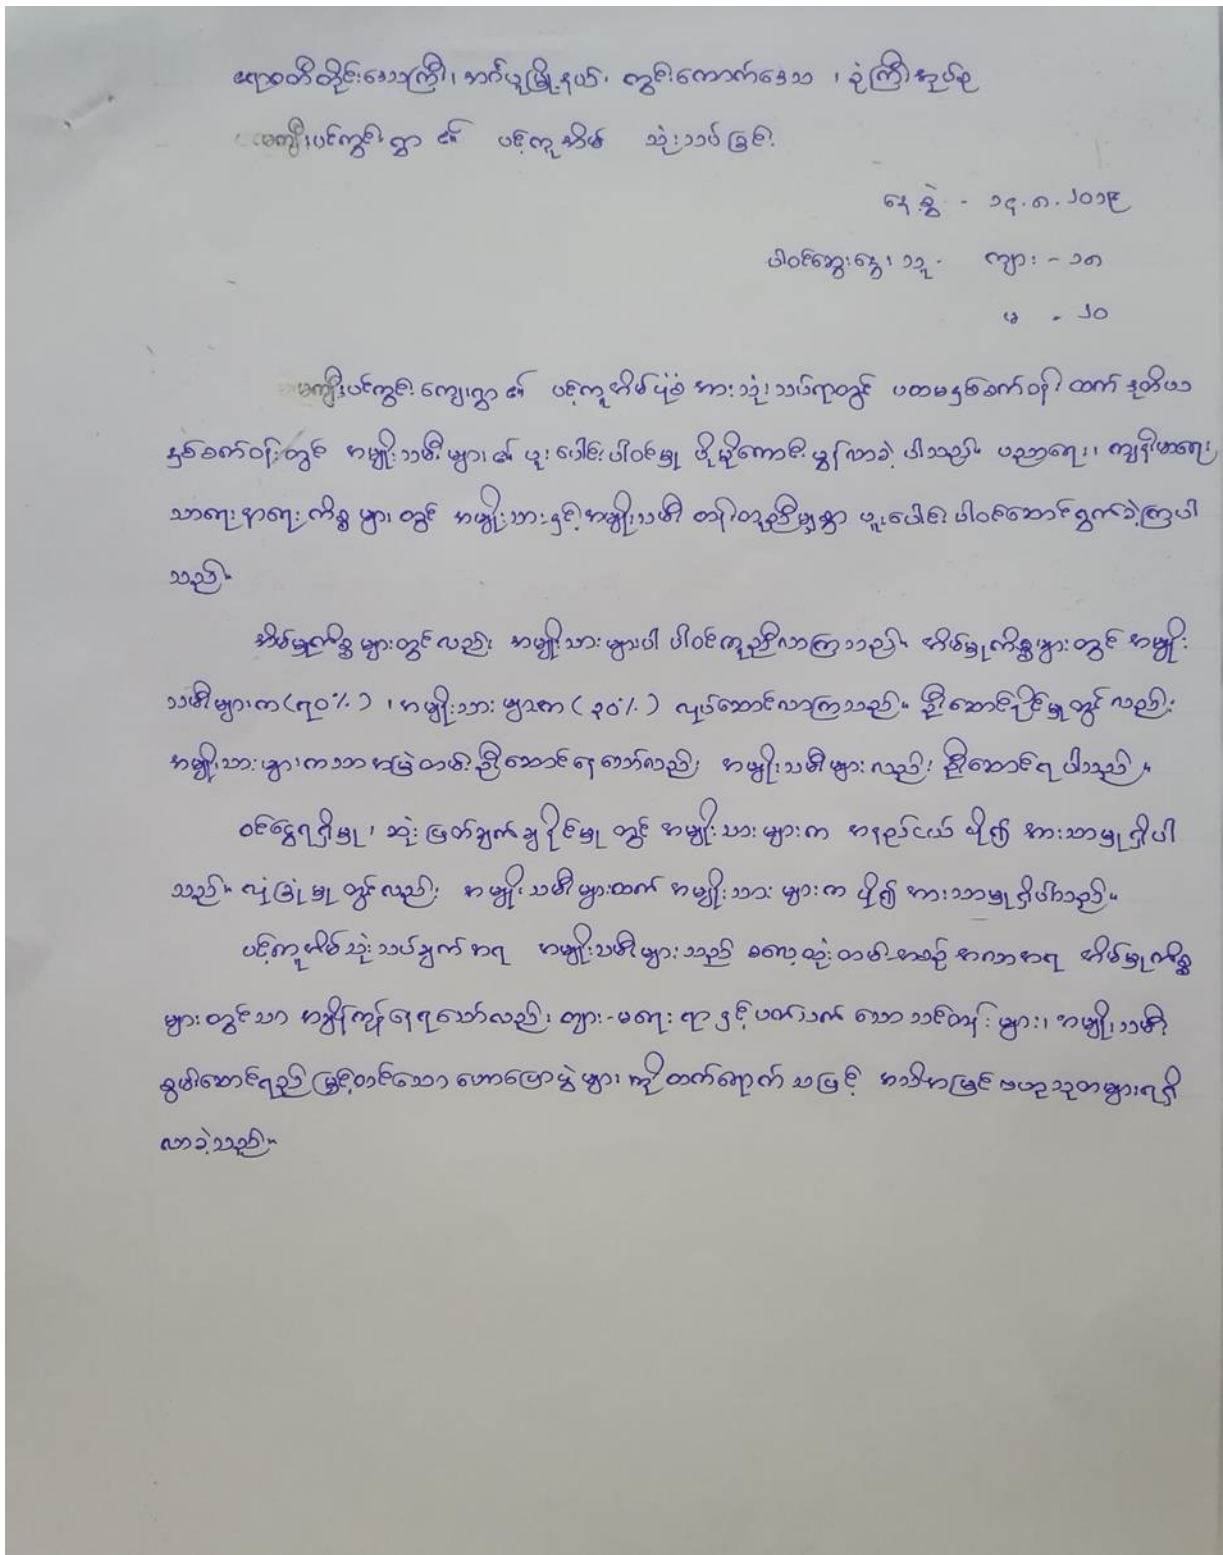 ဧရာဝတီတိုင်းဒေသကြီး၊ အင်္ဂပူမြို့နယ်၊ ကွင်းကောက်ဒေသ ၊ ခုံကြီးအုပ်စု
မကျီးပင်ကွင်းရွာ ၏ ပင့်ကူအိမ် သုံးသပ်ခြင်း
နေ့စွဲ - ၁၄.၈.၂၀၁၉
ပါဝင်ဆွေးနွေးသူ - ကျား - ၁၈
မ - ၂၀
မကျီးပင်ကွင်းကျေးရွာ ၏ ပင့်ကူအိမ်ပုံစံ အားသုံးသပ်ရာတွင် ပထမနှစ်ဝက်ဝန်းထက် ဒုတိယ
နှစ်ဝက်ဝန်းတွင် အမျိုးသမီးများ၏ ပူးပေါင်းပါဝင်မှု ပိုမိုကောင်းမွန်လာခဲ့ ပါသည်။ ပညာရေး၊ ကျန်းမာရေး၊
သာရေးနာရေးကိစ္စများတွင် အမျိုးသားနှင့်အမျိုးသမီး တန်းတူညီမျှစွာ ပူးပေါင်းပါဝင်ဆောင်ရွက်ခဲ့ကြပါ
သည်။
အိမ်မှုကိစ္စများတွင်လည်း အမျိုးသားများပါ ပါဝင်ကူညီလာကြသည်။ အိမ်မှုကိစ္စများတွင် အမျိုး
သမီးများက(၇၀%) ၊ အမျိုးသားများက (၃၀%) လုပ်ဆောင်လာကြသည်။ ဦးဆောင်နိုင်မှုတွင်လည်း
အမျိုးသားများကသာ အမြဲတမ်းဦးဆောင်နေသော်လည်း အမျိုးသမီးများလည်း ဦးဆောင်ရပါသည်။
ဝင်ငွေရရှိမှု၊ ဆုံးဖြတ်ချက်ချနိုင်မှု တွင် အမျိုးသားများက အနည်းငယ် ပို၍ အားသာမှုရှိပါ
သည်။ လုံခြုံမှုတွင်လည်း အမျိုးသမီးများထက် အမျိုးသားများက ပို၍ အားသာမှုရှိပါသည်။
ပင့်ကူအိမ်သုံးသပ်ချက်အရ အမျိုးသမီးများသည် ဓလေ့ထုံးတမ်းအစဉ်အလာအရ အိမ်မှုကိစ္စ
များတွင်သာ အချိန်ကုန်နေရသော်လည်း ကျား-မရေးရာနှင့်ပတ်သက်သော သင်တန်းများ၊ အမျိုးသမီး
စွမ်းဆောင်ရည်မြှင့်တင်သော ဟောပြောပွဲများကိုတက်ရောက်သဖြင့် အသိအမြင်ဗဟုသုတများရရှိ
လာခဲ့သည်။